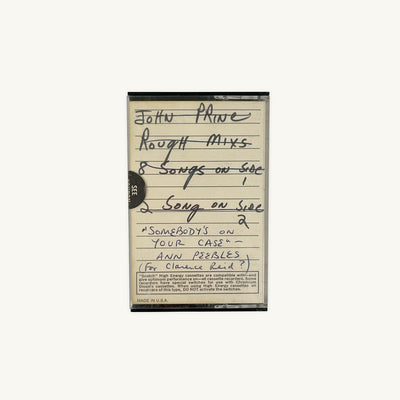 JOHN PRINE
ROUGH MIXS
8 SONGS ON SIDE 1
2 SONG ON SIDE 2
"SOMEBODY'S ON
YOUR CASE" -
ANN PEEBLES
(For Clarence Reid?)
"Scotch" High Energy cassettes are compatible with—and
give optimum performance on—all cassette recorders. Some
recorders have special switches for use with Chromium
Dioxide cassettes. When using High Energy cassettes on
recorders of this type, DO NOT activate the switches.
MADE IN U.S.A.
SEE